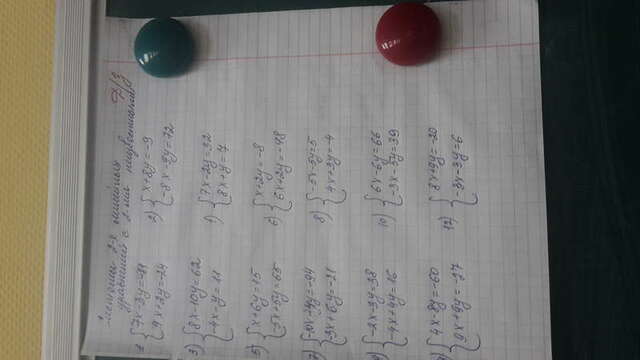 Системы 2-х линейных д/з
уравнений с 2-мя неизвестными
7x-3y=
9x+2y=-24
2) x+8y=-9
-8x-9y=72
3) 8x-10y=62
-4x-y=11
4) 7x-2y=32
8x+y=7
5) x+6y=15
-5x+5y=65
6) x+2y=-8
6x+2y=-48
7) -10x+4y=-94
3x+6y=-21
8) -5x-5y=5
4x+3y=-4
9) -2x-3y=38
-4x+4y=16
10) 6x-6y=66
-3x-5y=39
4x-8y=-60
9x+9y=-27
12) 8x+9y=-20
-3x-3y=6